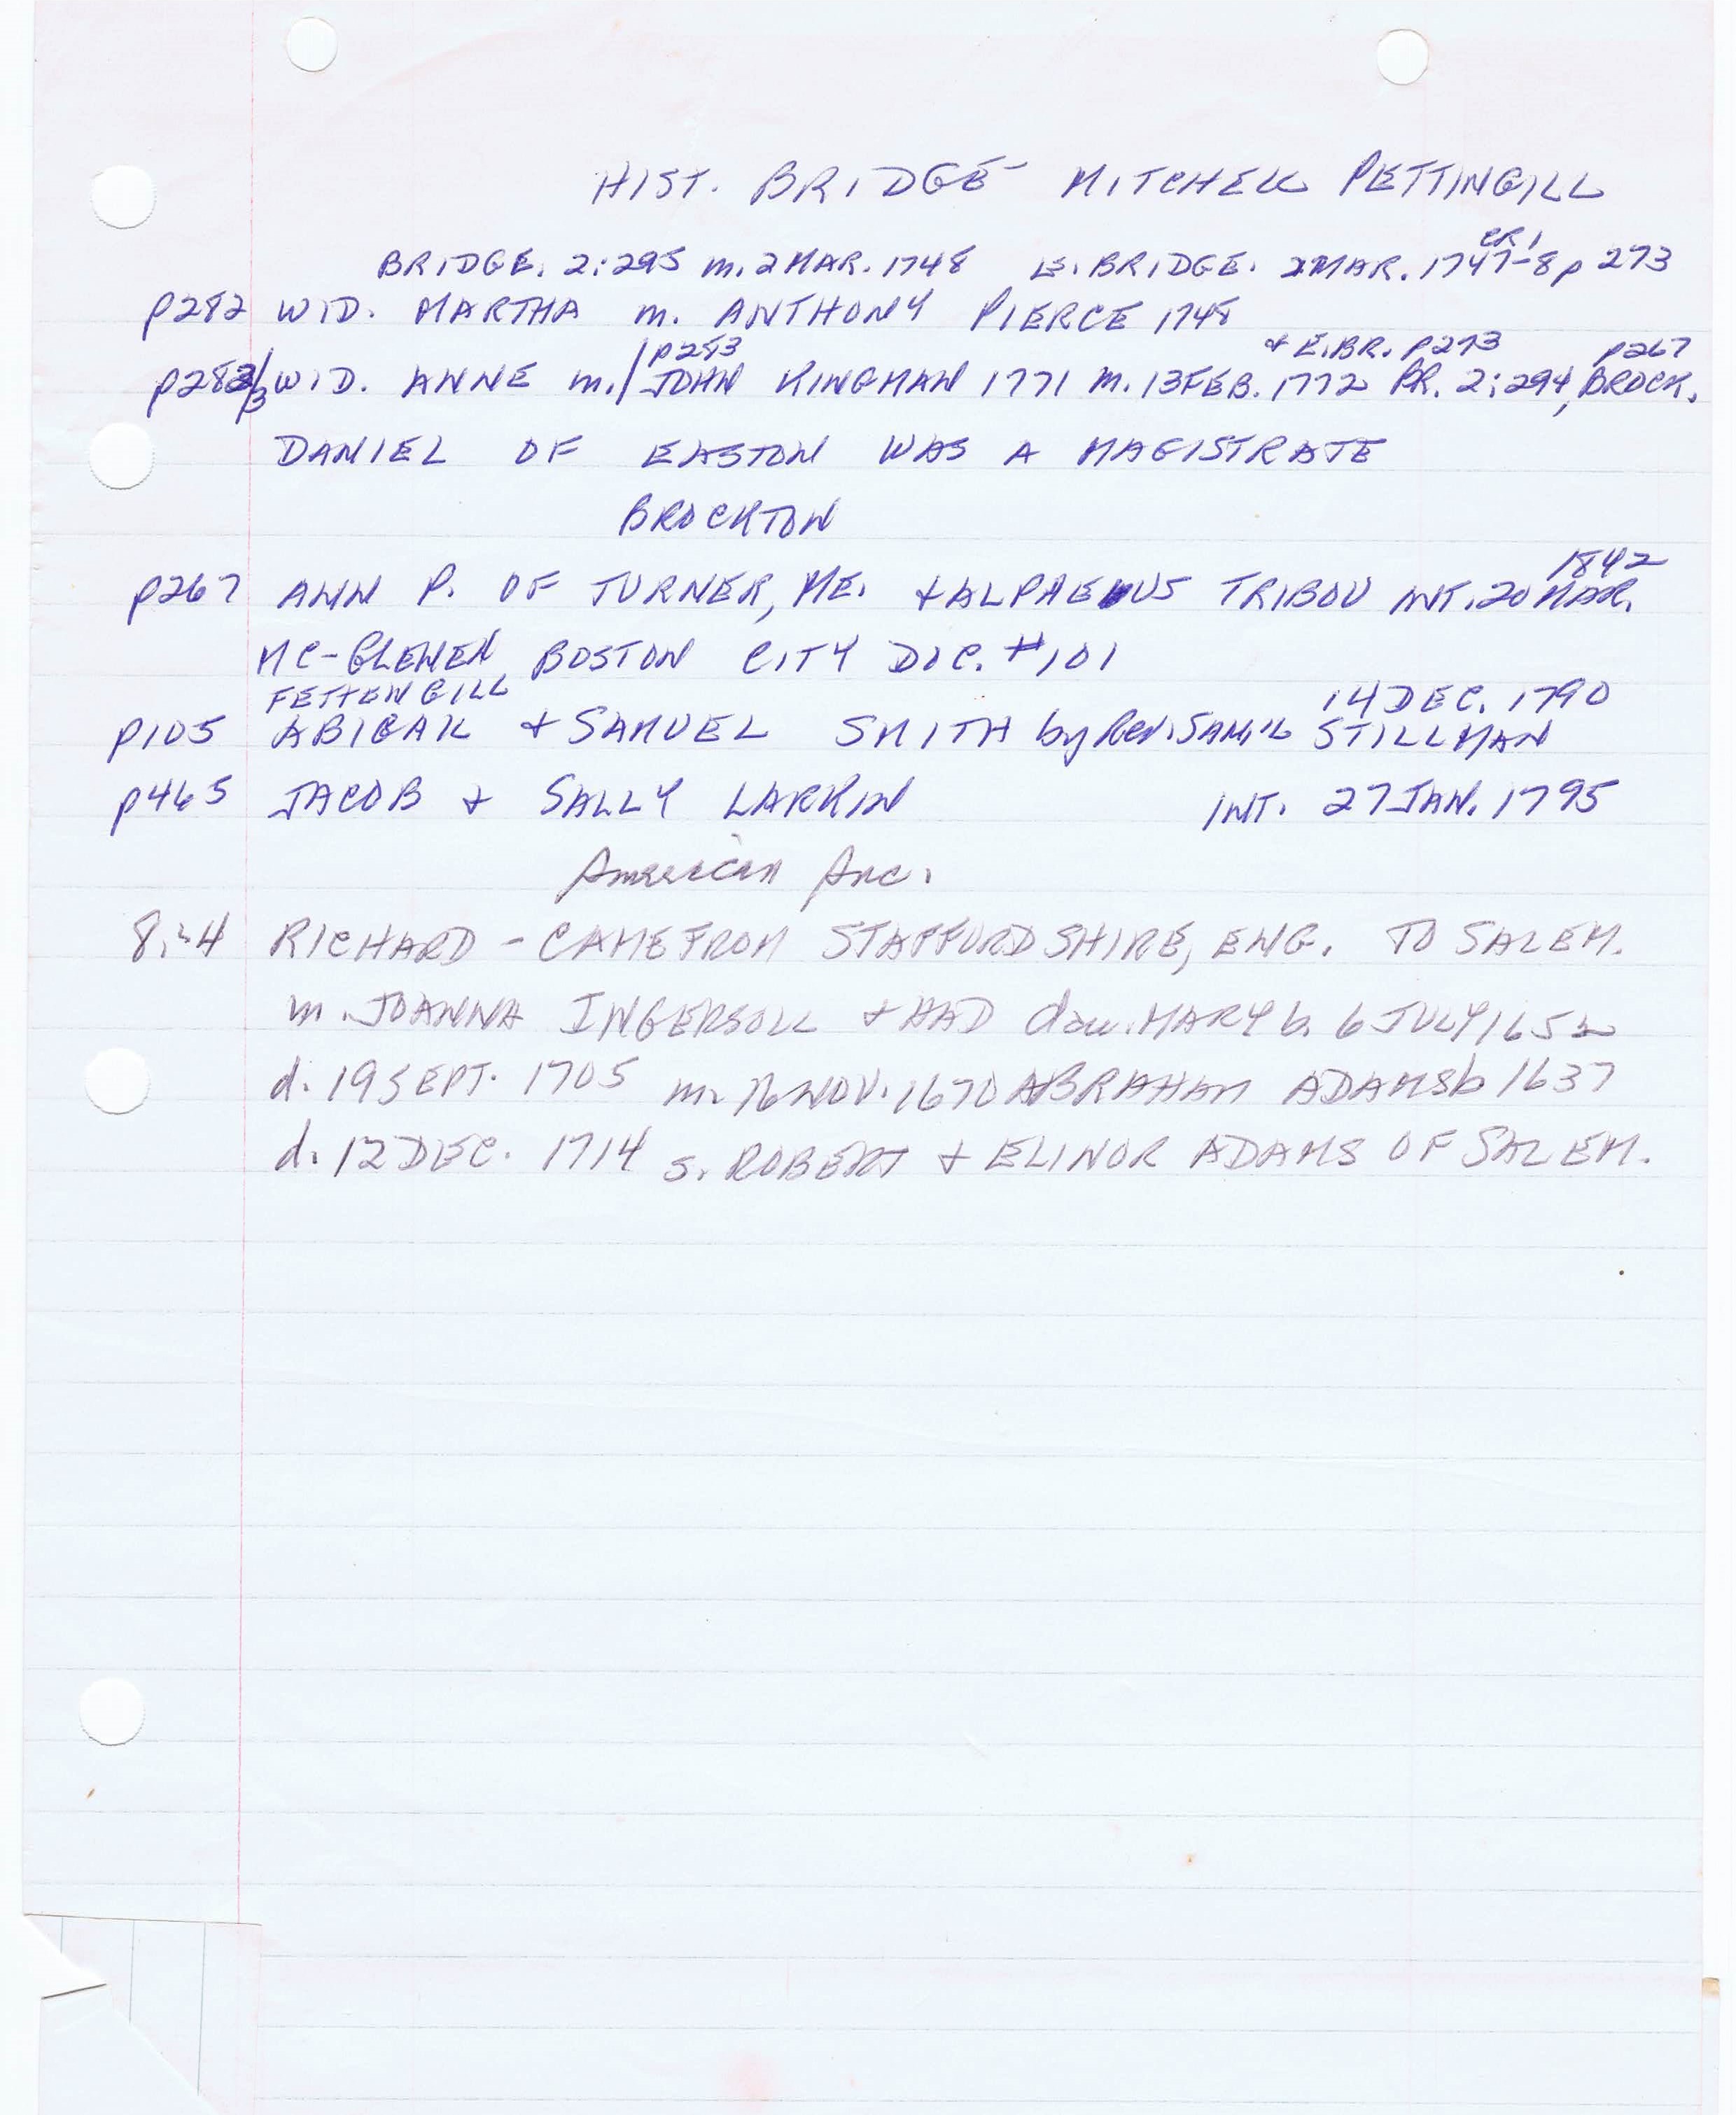 HIST. BRIDGE- MITCHELL PETTINGILL
CR1
BRIDGE. 2:295 m. 2 MAR. 1748 E. BRIDGE. 2 MAR. 1747-8 p 273
p282 WID. MARTHA m. ANTHONY PIERCE 1748
p283 & E.BR. P273 p267
WID. ANNE m./JOHN KINGMAN 1771 m. 13 FEB. 1772 BR. 2:294, BROCK.
DANIEL OF EASTON WAS A MAGISTRATE
BROCKTON
1842
p267 ANN P. OF TURNER, ME. & ALPHAEUS TRIBOU INT. 20 MAR.
MC-GLENEN BOSTON CITY DOC. #101
PETTENGILL 14 DEC. 1790
p105 ABIGAIL & SAMUEL SMITH by Rev. SAM'L STILLMAN
p465 JACOB & SALLY LARKIN INT. 27 JAN. 1795
American Anc.
RICHARD - CAME FROM STAFFORDSHIRE, ENG. TO SALEM.
m. JOANNA INGERSOLL & HAD dau. MARY b. 6 JULY 1652
d. 19 SEPT. 1705 m. 16 NOV. 1670 ABRAHAM ADAMS b 1637
d. 12 DEC. 1714 s. ROBERT & ELINOR ADAMS OF SALEM.